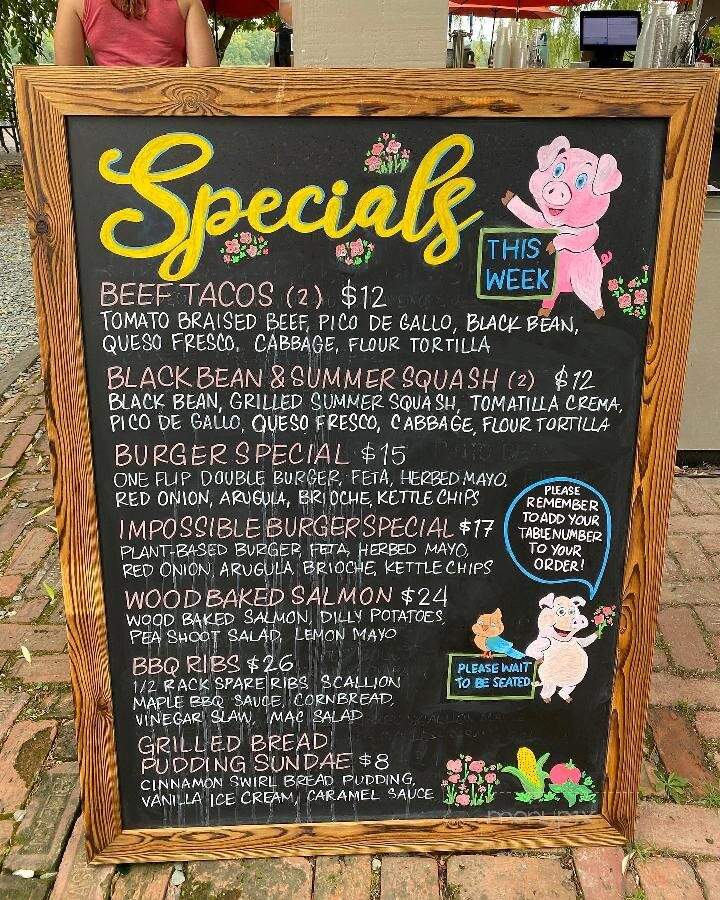 Specials
THIS
WEEK
BEEF TACOS (2) $12
TOMATO BRAISED BEEF, PICO DE GALLO, BLACK BEAN,
QUESO FRESCO, CABBAGE, FLOUR TORTILLA
BLACK BEAN & SUMMER SQUASH (2) $12
BLACK BEAN, GRILLED SUMMER SQUASH, TOMATILLA CREMA,
PICO DE GALLO, QUESO FRESCO, CABBAGE, FLOUR TORTILLA
BURGER SPECIAL $15
ONE FLIP DOUBLE BURGER, FETA, HERBED MAYO,
RED ONION, ARUGULA, BRIOCHE, KETTLE CHIPS
IMPOSSIBLE BURGER SPECIAL $17
PLANT-BASED BURGER, FETA, HERBED MAYO,
RED ONION, ARUGULA, BRIOCHE, KETTLE CHIPS
PLEASE
REMEMBER
TO ADD YOUR
TABLE NUMBER
TO YOUR
ORDER!
WOOD BAKED SALMON $24
WOOD BAKED SALMON, DILLY POTATOES,
PEA SHOOT SALAD, LEMON MAYO
BBQ RIBS $26
1/2 RACK SPARE RIBS, SCALLION
MAPLE BBQ SAUCE, CORNBREAD,
VINEGAR SLAW, MAC SALAD
PLEASE WAIT
TO BE SEATED
GRILLED BREAD
PUDDING SUNDAE $8
CINNAMON SWIRL BREAD PUDDING,
VANILLA ICE CREAM, CARAMEL SAUCE